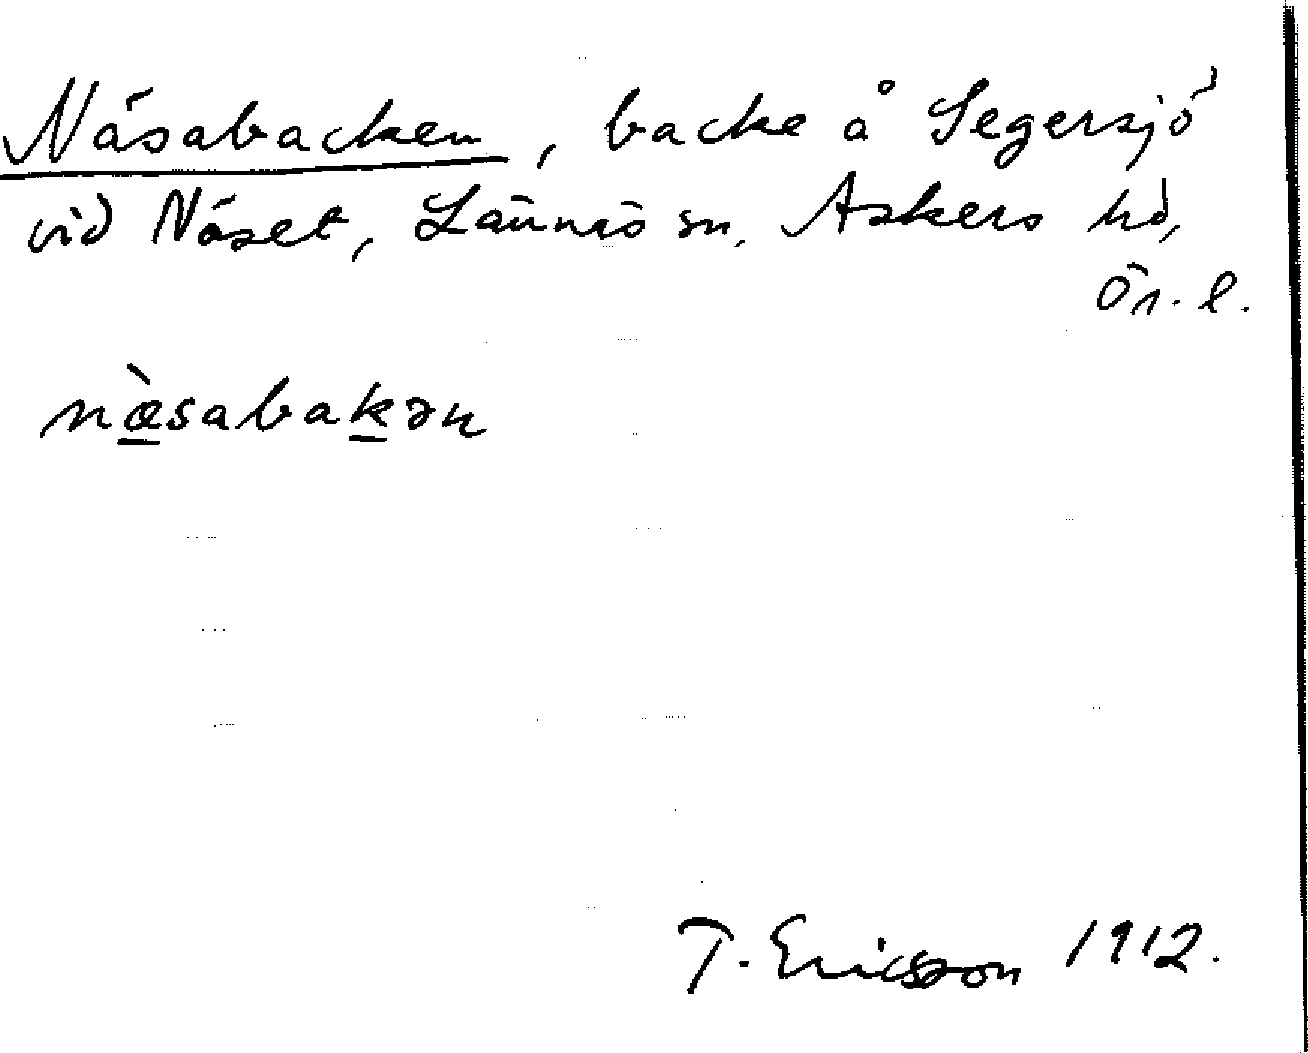 Näsabacken, backe å Segersjö
vid Näset, Lännäs sn, Askers hd,
Ör. l.
næ̀sabakən
T. Ericsson 1912.